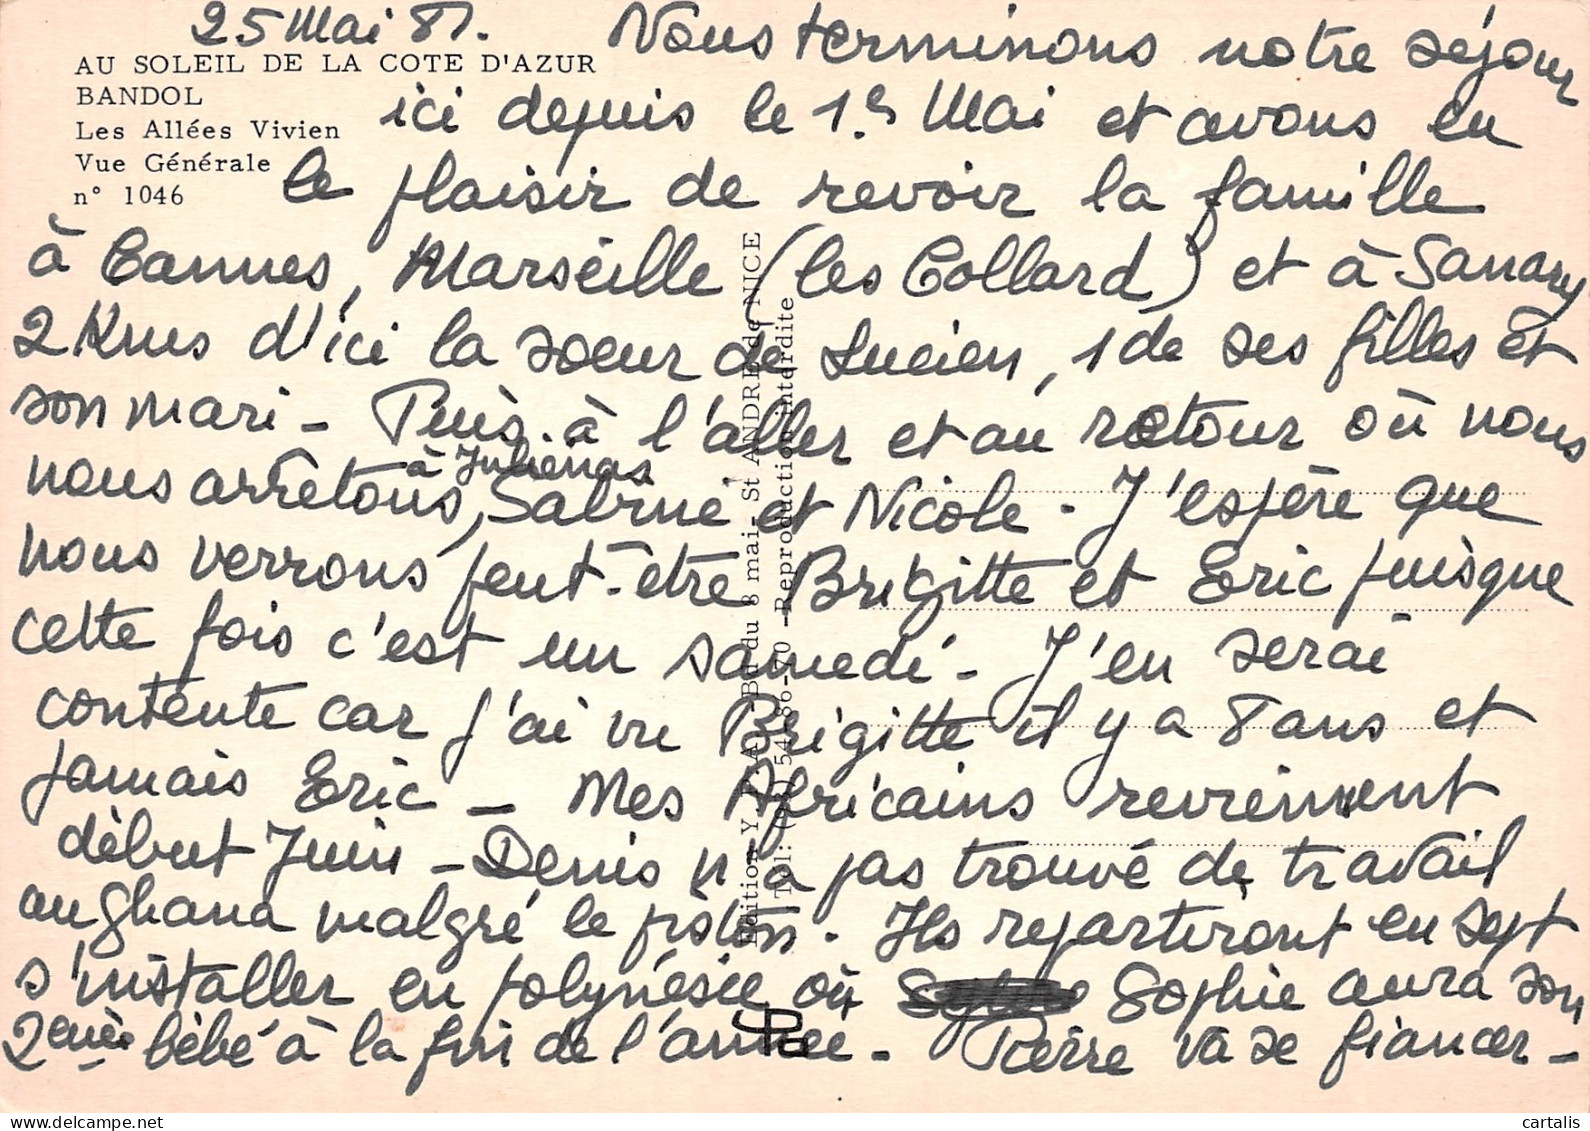 25 Mai 81.
AU SOLEIL DE LA COTE D'AZUR
BANDOL
Les Allées Vivien
Vue Générale
n° 1046
Nous terminons notre séjour
ici depuis le 1er Mai et avons eu
le plaisir de revoir la famille
à Cannes, Marseille (les Collard) et à Sanary
2 Kms d'ici la soeur de Lucien, 1 de ses filles et
son mari - Puis à l'aller et au retour où nous
nous arrêtons, à Juliénas Sabine et Nicole. J'espère que
nous verrons peut-être Brigitte et Eric puisque
cette fois c'est un samedi - J'en serai
contente car j'ai vu Brigitte il y a 8 ans et
jamais Eric - Mes Africains reviennent
début Juin - Denis n'a pas trouvé de travail
au Ghana malgré le piston. Ils repartiront en sept
s'installer en polynésie où Sophie aura son
2ème bébé à la fin de l'année - Pierre va se fiancer -
Edition Bd du 8 mai, St ANDRE de NICE
Tél: 54-86-70 - Reproduction interdite